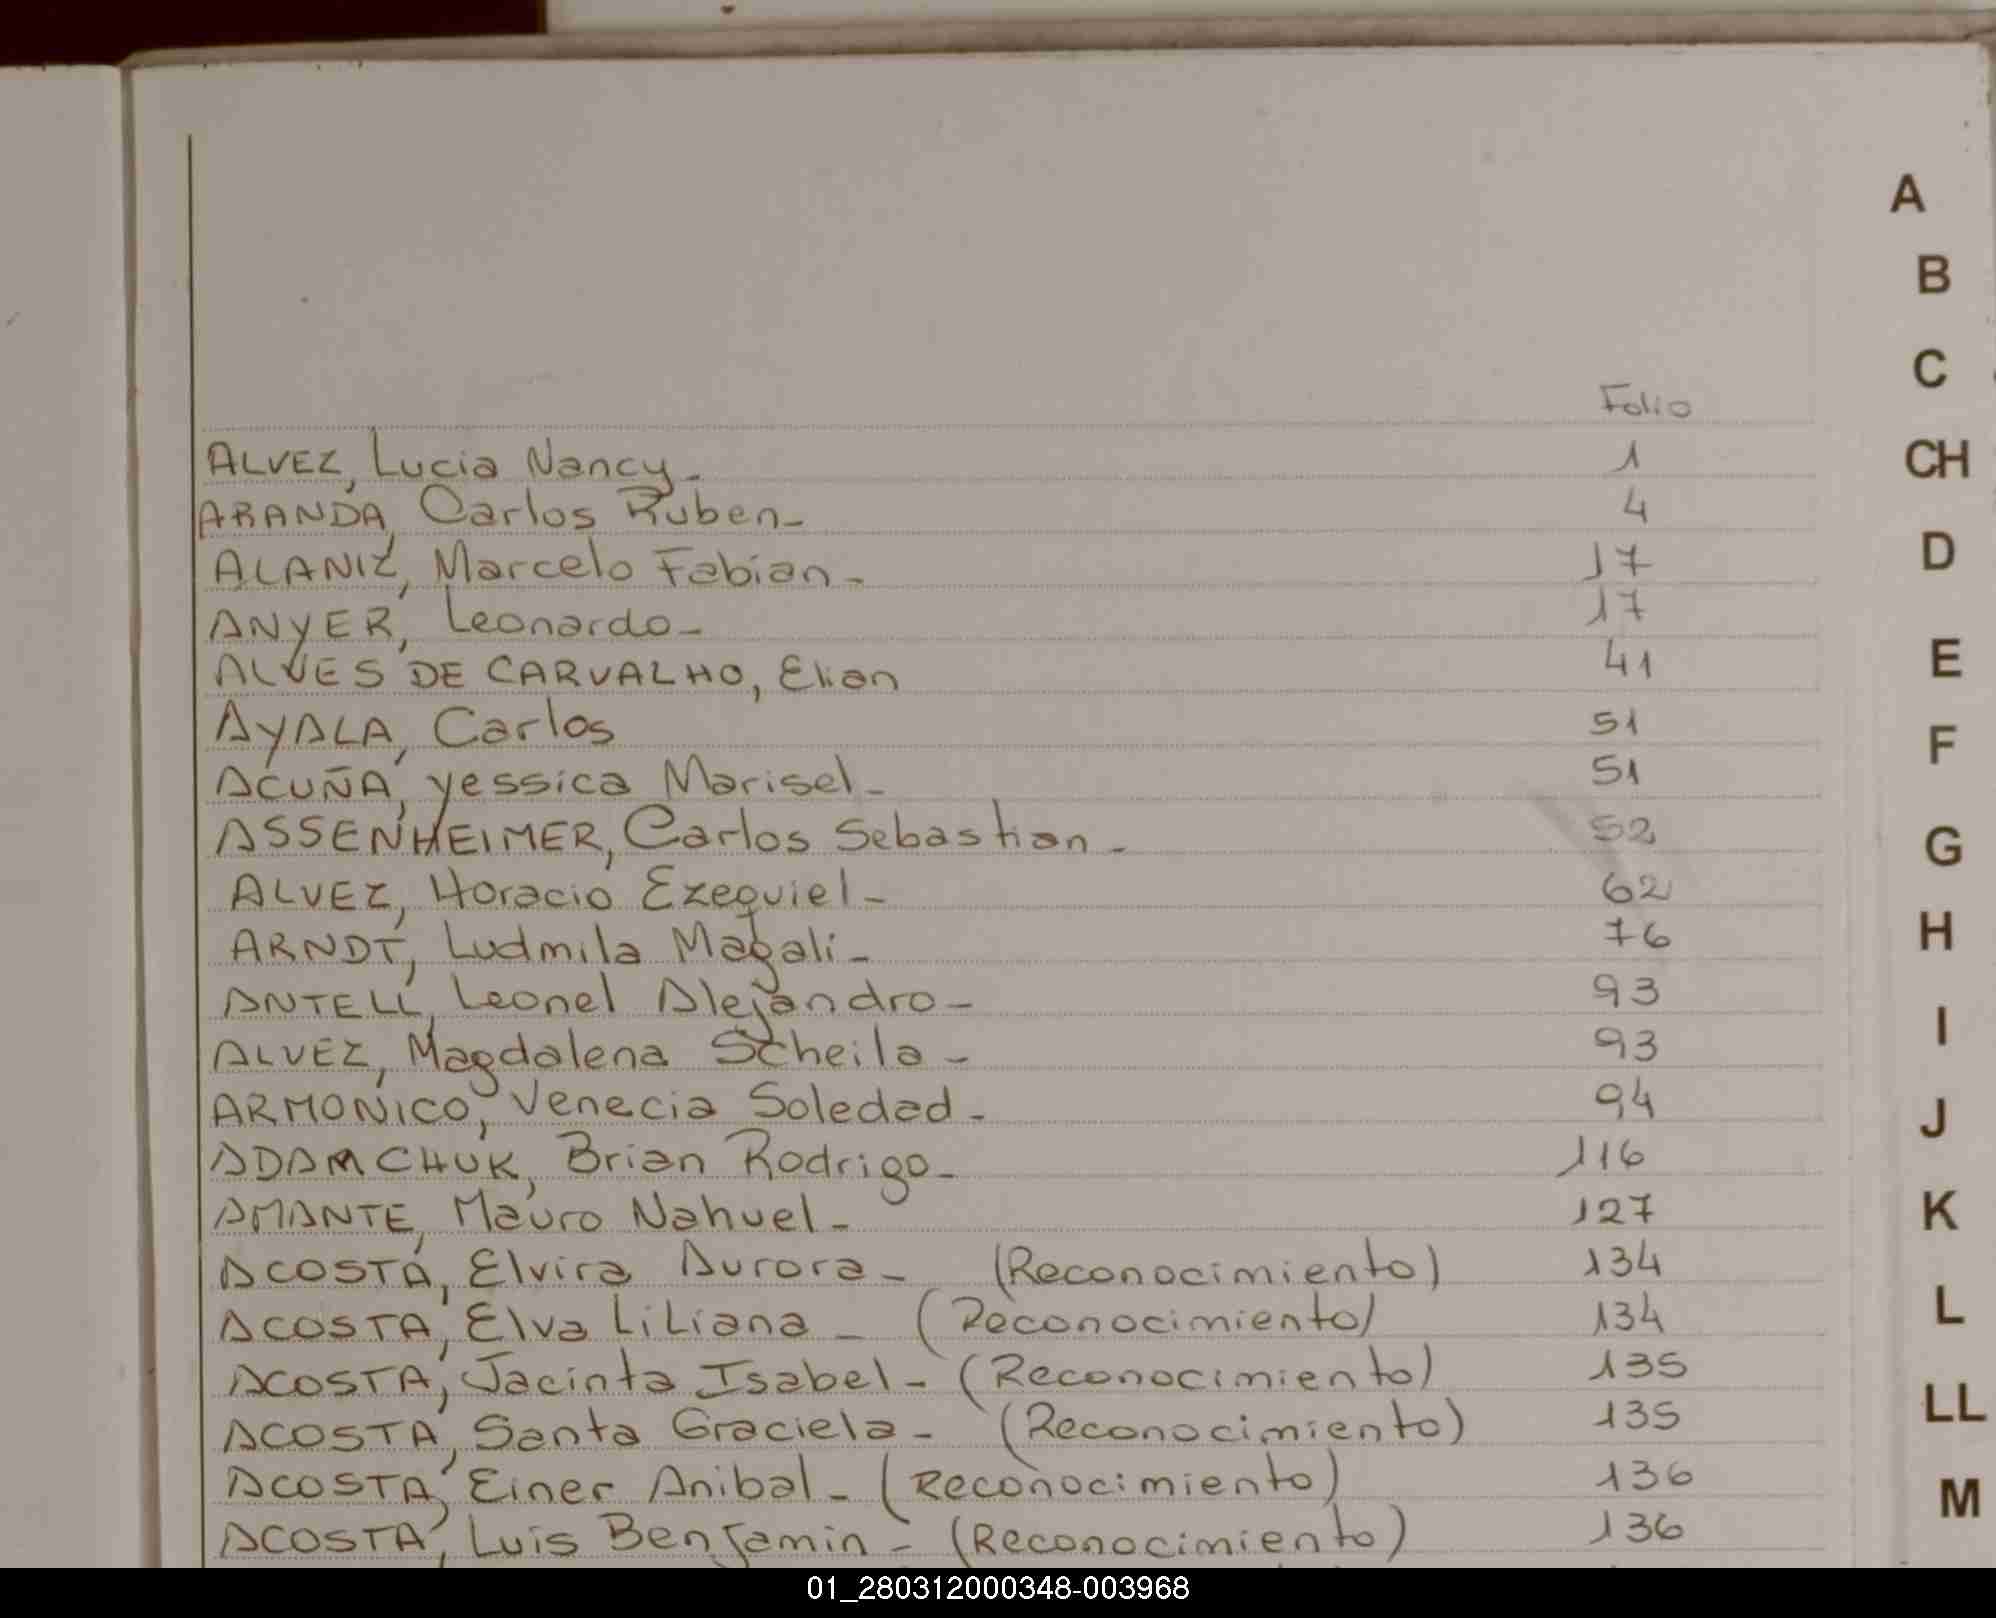 Folio
ALVEZ, Lucia Nancy- 1
ARANDA, Carlos Ruben- 4
ALANIZ, Marcelo Fabian- 17
ANYER, Leonardo- 17
ALVES DE CARVALHO, Elian 41
AYALA, Carlos 51
ACUÑA, yessica Marisel- 51
ASSENHEIMER, Carlos Sebastian- 52
ALVEZ, Horacio Ezequiel- 62
ARNDT, Ludmila Magali- 76
ANTELL, Leonel Alejandro- 93
ALVEZ, Magdalena Scheila- 93
ARMONICO, Venecia Soledad- 94
ADAMCHUK, Brian Rodrigo- 116
AMANTE, Mauro Nahuel- 127
ACOSTA, Elvira Aurora- (Reconocimiento) 134
ACOSTA, Elva LiLiana- (Reconocimiento) 134
ACOSTA, Jacinta Isabel- (Reconocimiento) 135
ACOSTA, Santa Graciela- (Reconocimiento) 135
ACOSTA, Einer Anibal- (Reconocimiento) 136
ACOSTA, Luis Benjamin- (Reconocimiento) 136
A
B
C
CH
D
E
F
G
H
I
J
K
L
LL
M
01_280312000348-003968